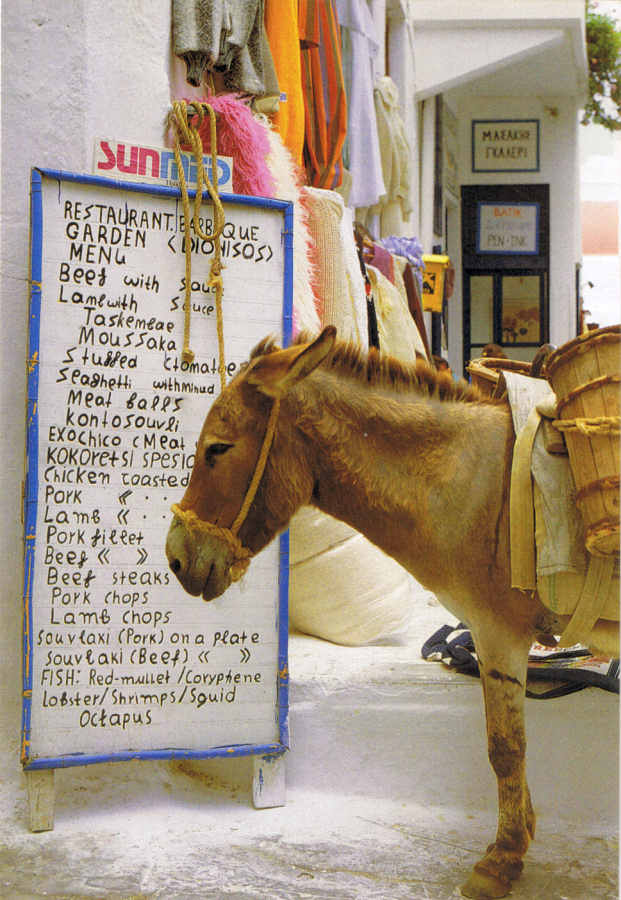 SUNMED
RESTAURANT BARBEQUE
GARDEN (DIONISOS)
MENU
Beef with sauce
Lamb with sauce
Taskembae
Moussaka
Stuffed Ctomatoe
Spaghetti withmind
Meat balls
Kontosouvli
Exochico (Meat
KOKORETSI SPESIA
Chicken roasted
Pork « ··
Lamb « ··
Pork fillet
Beef « »
Beef steaks
Pork chops
Lamb chops
souvlaki (Pork) on a plate
souvlaki (Beef) « »
FISH: Red-mullet/Coryphene
Lobster/Shrimps/Squid
Octapus
ΜΑΣΑΚΗΣ
ΓΚΑΛΕΡΙ
BATIK
PEN-INK